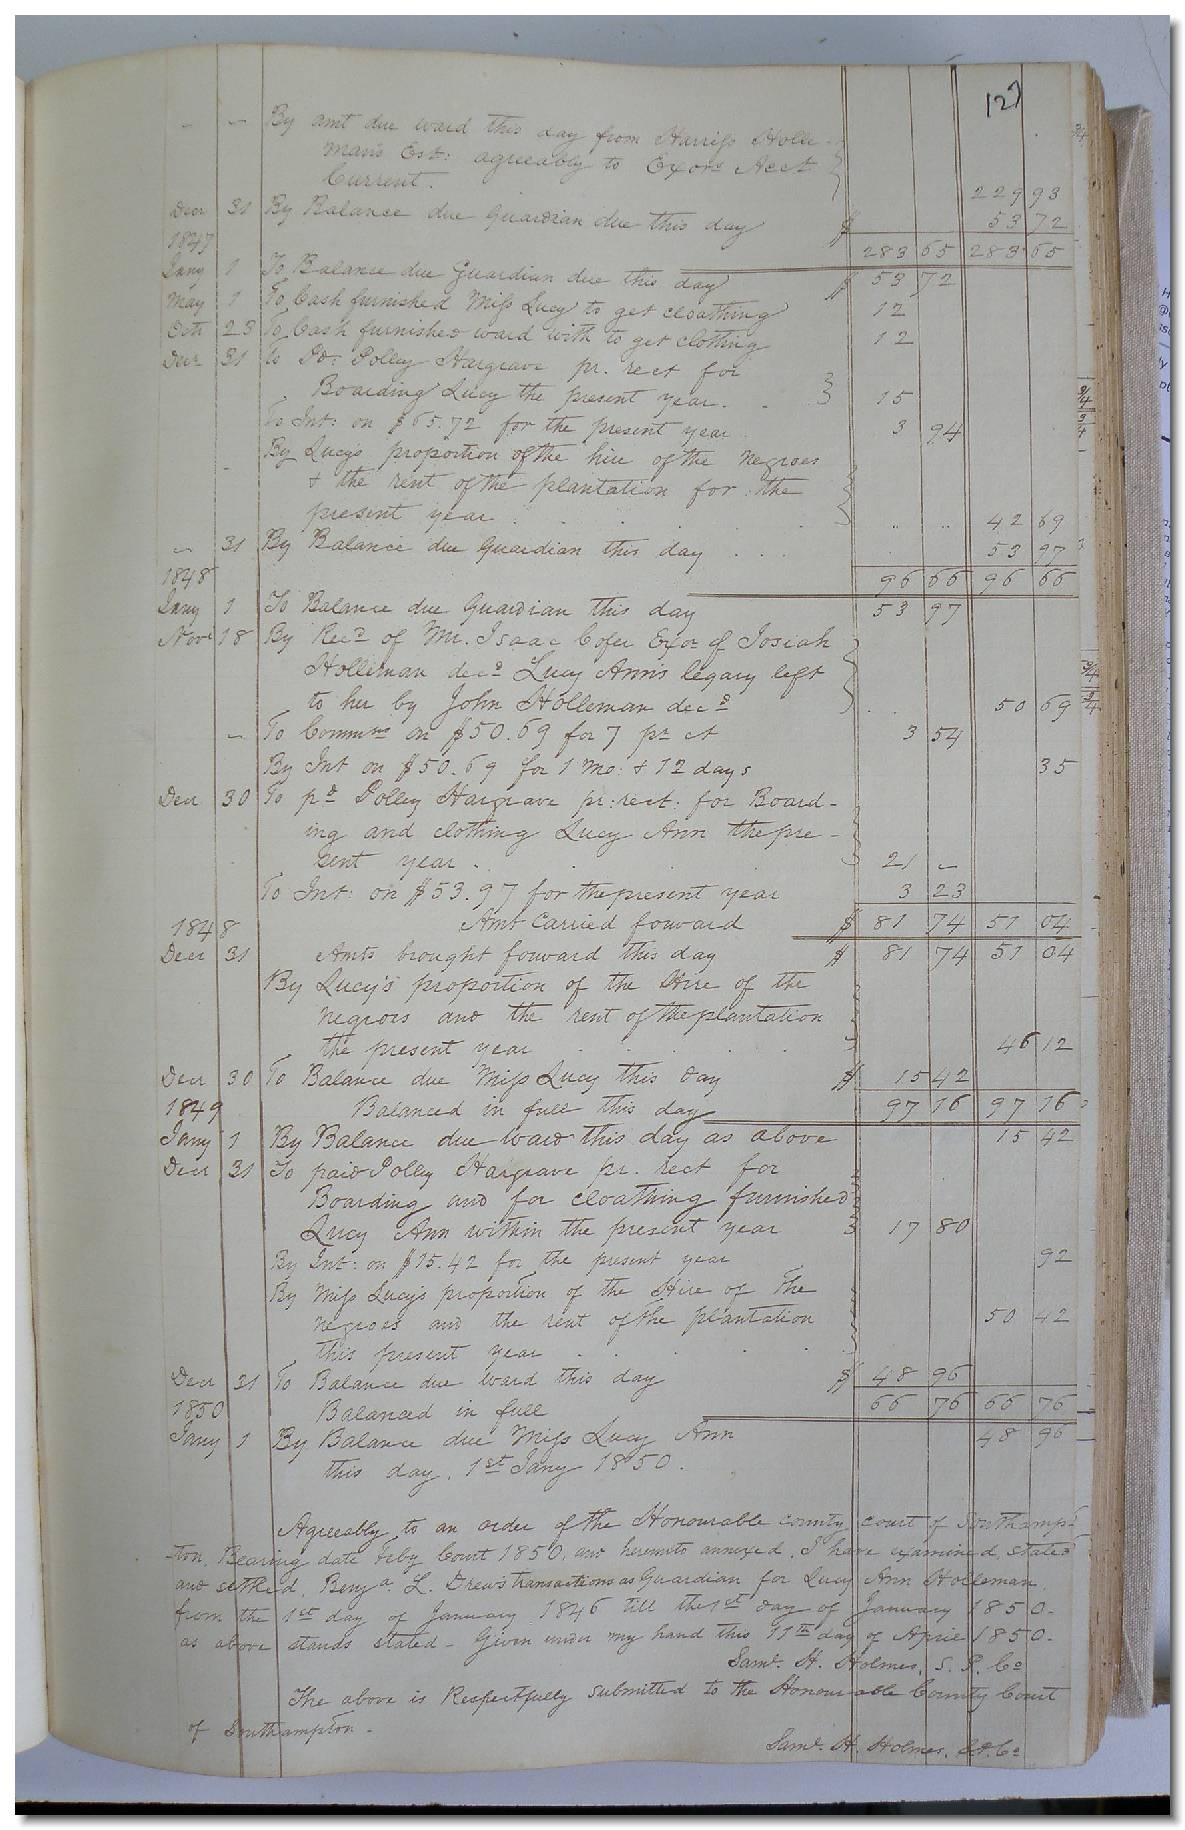 127
- - By amt due ward this day from Harriss Holle-
man's Est: agreeably to Exors Acct
Current. 229 93
Decr 31 By Balance due Guardian due this day $ 53 72
1847 283 65 283 65
Jany 1 To Balance due Guardian due this day $ 53 72
May 1 To Cash furnished Miss Lucy to get cloathing 12
Octr 23 To Cash furnished ward with to get clothing 12
Decr 31 To Do. Polley Hargrave pr. rect for
Boarding Lucy the present year. . 15
To Int: on $65.72 for the present year 3 94
By Lucys proportion of the hire of the negroes
& the rent of the plantation for the
present year . . . . " " 42 69
- 31 By Balance due Guardian this day . . . 53 97
1848 96 66 96 66
Jany 1 To Balance due Guardian this day 53 97
Novr 18 By Recd of Mr. Isaac Cofer Exor of Josiah
Holleman decd Lucy Ann's legacy left
to her by John Holleman decd 50 69
- To Commns on $50.69 for 7 pr ct 3 54
By Int on $50.69 for 1 mo: & 12 days 35
Decr 30 To pd Polley Hargrave pr: rect: for Board-
ing and clothing Lucy Ann the pre-
sent year . 21 -
To Int: on $53.97 for the present year 3 23
1848 Amt Carried forward $ 81 74 51 04
Decr 31 Amts brought forward this day $ 81 74 51 04
By Lucy's proportion of the Hire of the
negroes and the rent of the plantation
the present year . . . . 46 12
Decr 30 To Balance due Miss Lucy this day $ 15 42
1849 Balanced in full this day 97 16 97 16
Jany 1 By Balance due ward this day as above 15 42
Decr 31 To paid Polley Hargrave pr. rect for
Boarding and for cloathing furnished
Lucy Ann within the present year 17 80
By Int: on $15.42 for the present year 92
By Miss Lucy's proportion of the Hire of the
negroes and the rent of the plantation 50 42
this present year . . . . .
Decr 31 To Balance due ward this day $ 48 96
1850 Balanced in full 66 76 66 76
Jany 1 By Balance due Miss Lucy Ann 48 96
this day. 1st Jany 1850.
Agreeably to an order of the Honourable county court of Southamp-
ton, Bearing date Feby Court 1850, and hereunto annexed, I have examined, stated
and settled, Benja. L. Drew's transactions as Guardian for Lucy Ann Holleman
from the 1st day of January 1846 till the 1st day of January 1850-
as above stands stated - Given under my hand this 11th day of April 1850-
Saml. H. Holmes, S. P. Co
The above is Respectfully submitted to the Honourable County Court
of Southampton -
Saml. H. Holmes,